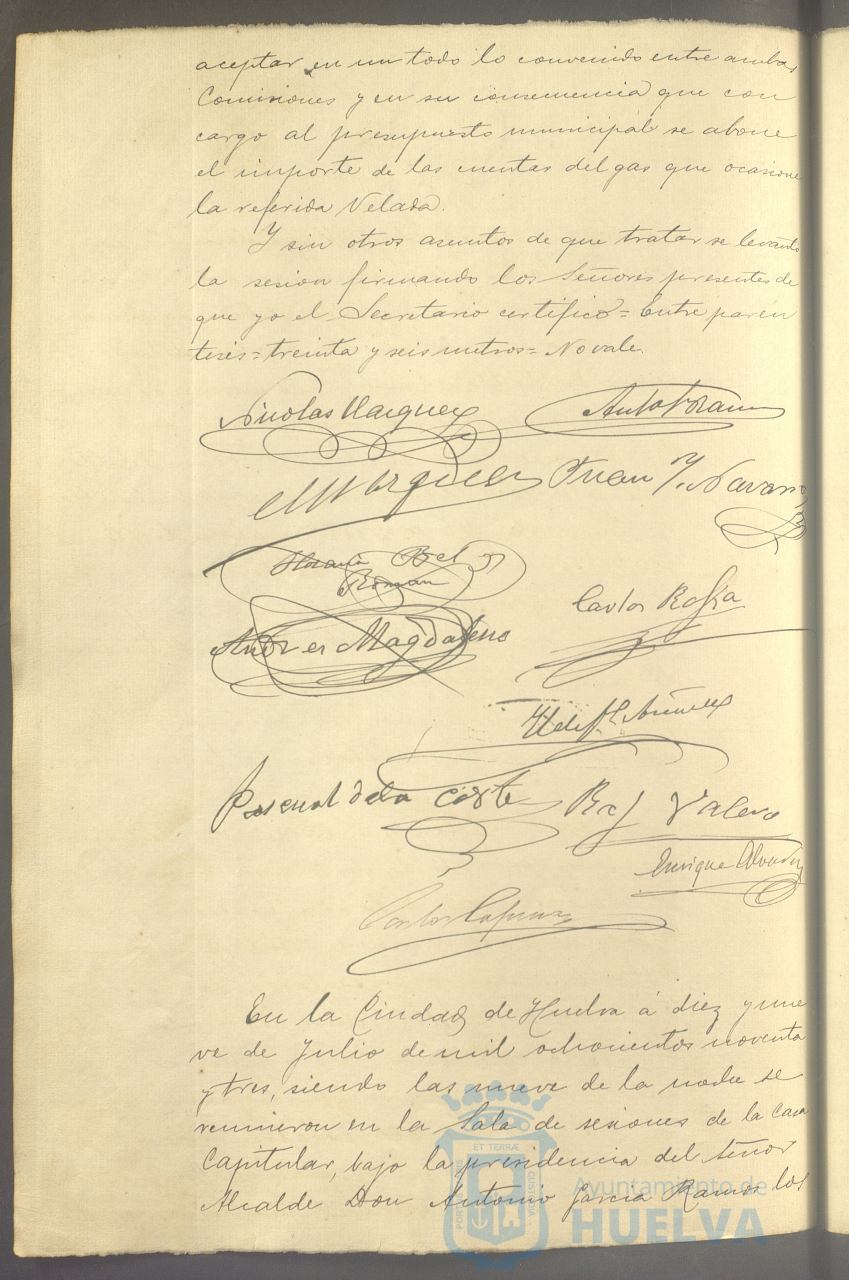 aceptar en un todo lo convenido entre ambas
Comisiones y en su consecuencia que con
cargo al presupuesto municipal se abone
el importe de las cuentas del gas que ocasione
la referida Velada.
Y sin otros asuntos de que tratar se levantó
la sesion firmando los Señores presentes de
que yo el Secretario certifico = Entre parén
tesis = treinta y seis metros = No vale.
Nicolas Vazquez
Juan J. Navarro
Horacio Bel y
Roman
Carlos Rofa
Andres Magdaleno
Pascual de la Corte
Raf Valero
Enrique
Carlos
En la Ciudad de Huelva á diez y nue
ve de Julio de mil ochocientos noventa
y tres, siendo las nueve de la noche se
reunieron en la Sala de sesiones de la Casa
Capitular, bajo la presidencia del Señor
Alcalde Don Antonio Garcia Ramos los
ET TERRÆ
Ayuntamiento de
HUELVA